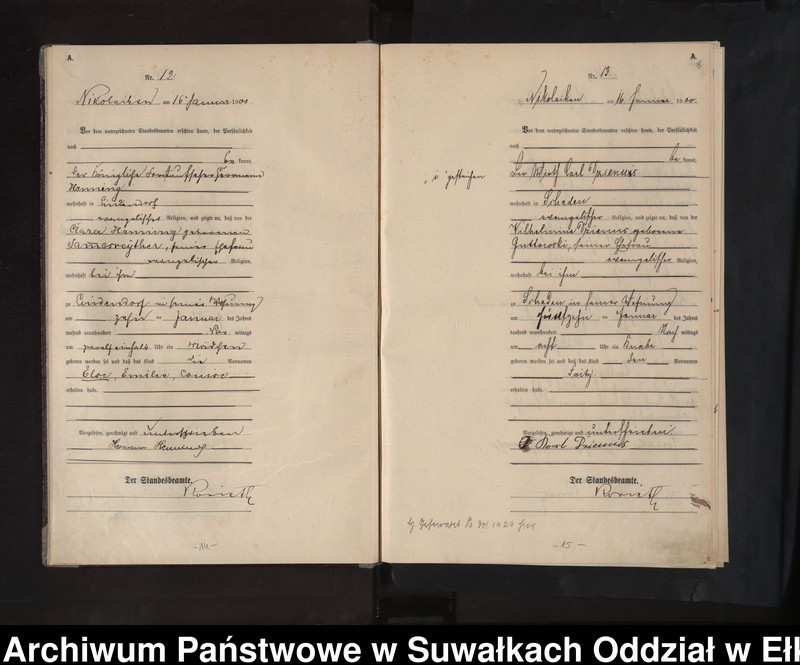 A.
Nr. 12
Nikolaiken am 16 Januar 1900.
Vor dem unterzeichneten Standesbeamten erschien heute, der Persönlichkeit
nach
be kannt,
der Königliche Forstaufseher Hermann
Henning
wohnhaft in Lindendorf
evangelischer Religion, und zeigte an, daß von der
Clara Henning geborenen
seiner Ehefrau
evangelischer Religion,
wohnhaft bei ihm
zu Lindendorf in seiner Wohnung
am zehn ten Januar des Jahres
tausend neunhundert Vor mittags
um zwölfeinhalb Uhr ein Mädchen
geboren worden sei und daß das Kind die Vornamen
Emilie
erhalten habe.
Vorgelesen, genehmigt und unterschrieben
Hermann Henning
Der Standesbeamte.
- 14 -
A.
8
Nr. 13.
Nikolaiken am 16. Januar 1900.
Vor dem unterzeichneten Standesbeamten erschien heute, der Persönlichkeit
nach
be kannt,
der Wirth Carl
wohnhaft in Schaden
evangelischer Religion, und zeigte an, daß von der
Wilhelmine geborene
seiner Ehefrau
evangelischer Religion
wohnhaft bei ihm
zu Schaden in seiner Wohnung
am ten Januar des Jahres
tausend neunhundert Nach mittags
um acht Uhr ein Knabe
geboren worden sei und daß das Kind den Vornamen
Fritz
erhalten habe.
Vorgelesen, genehmigt und unterschrieben
Karl
Der Standesbeamte.
1 gestrichen
- 15 -
Archiwum Państwowe w Suwałkach Oddział w Ełk